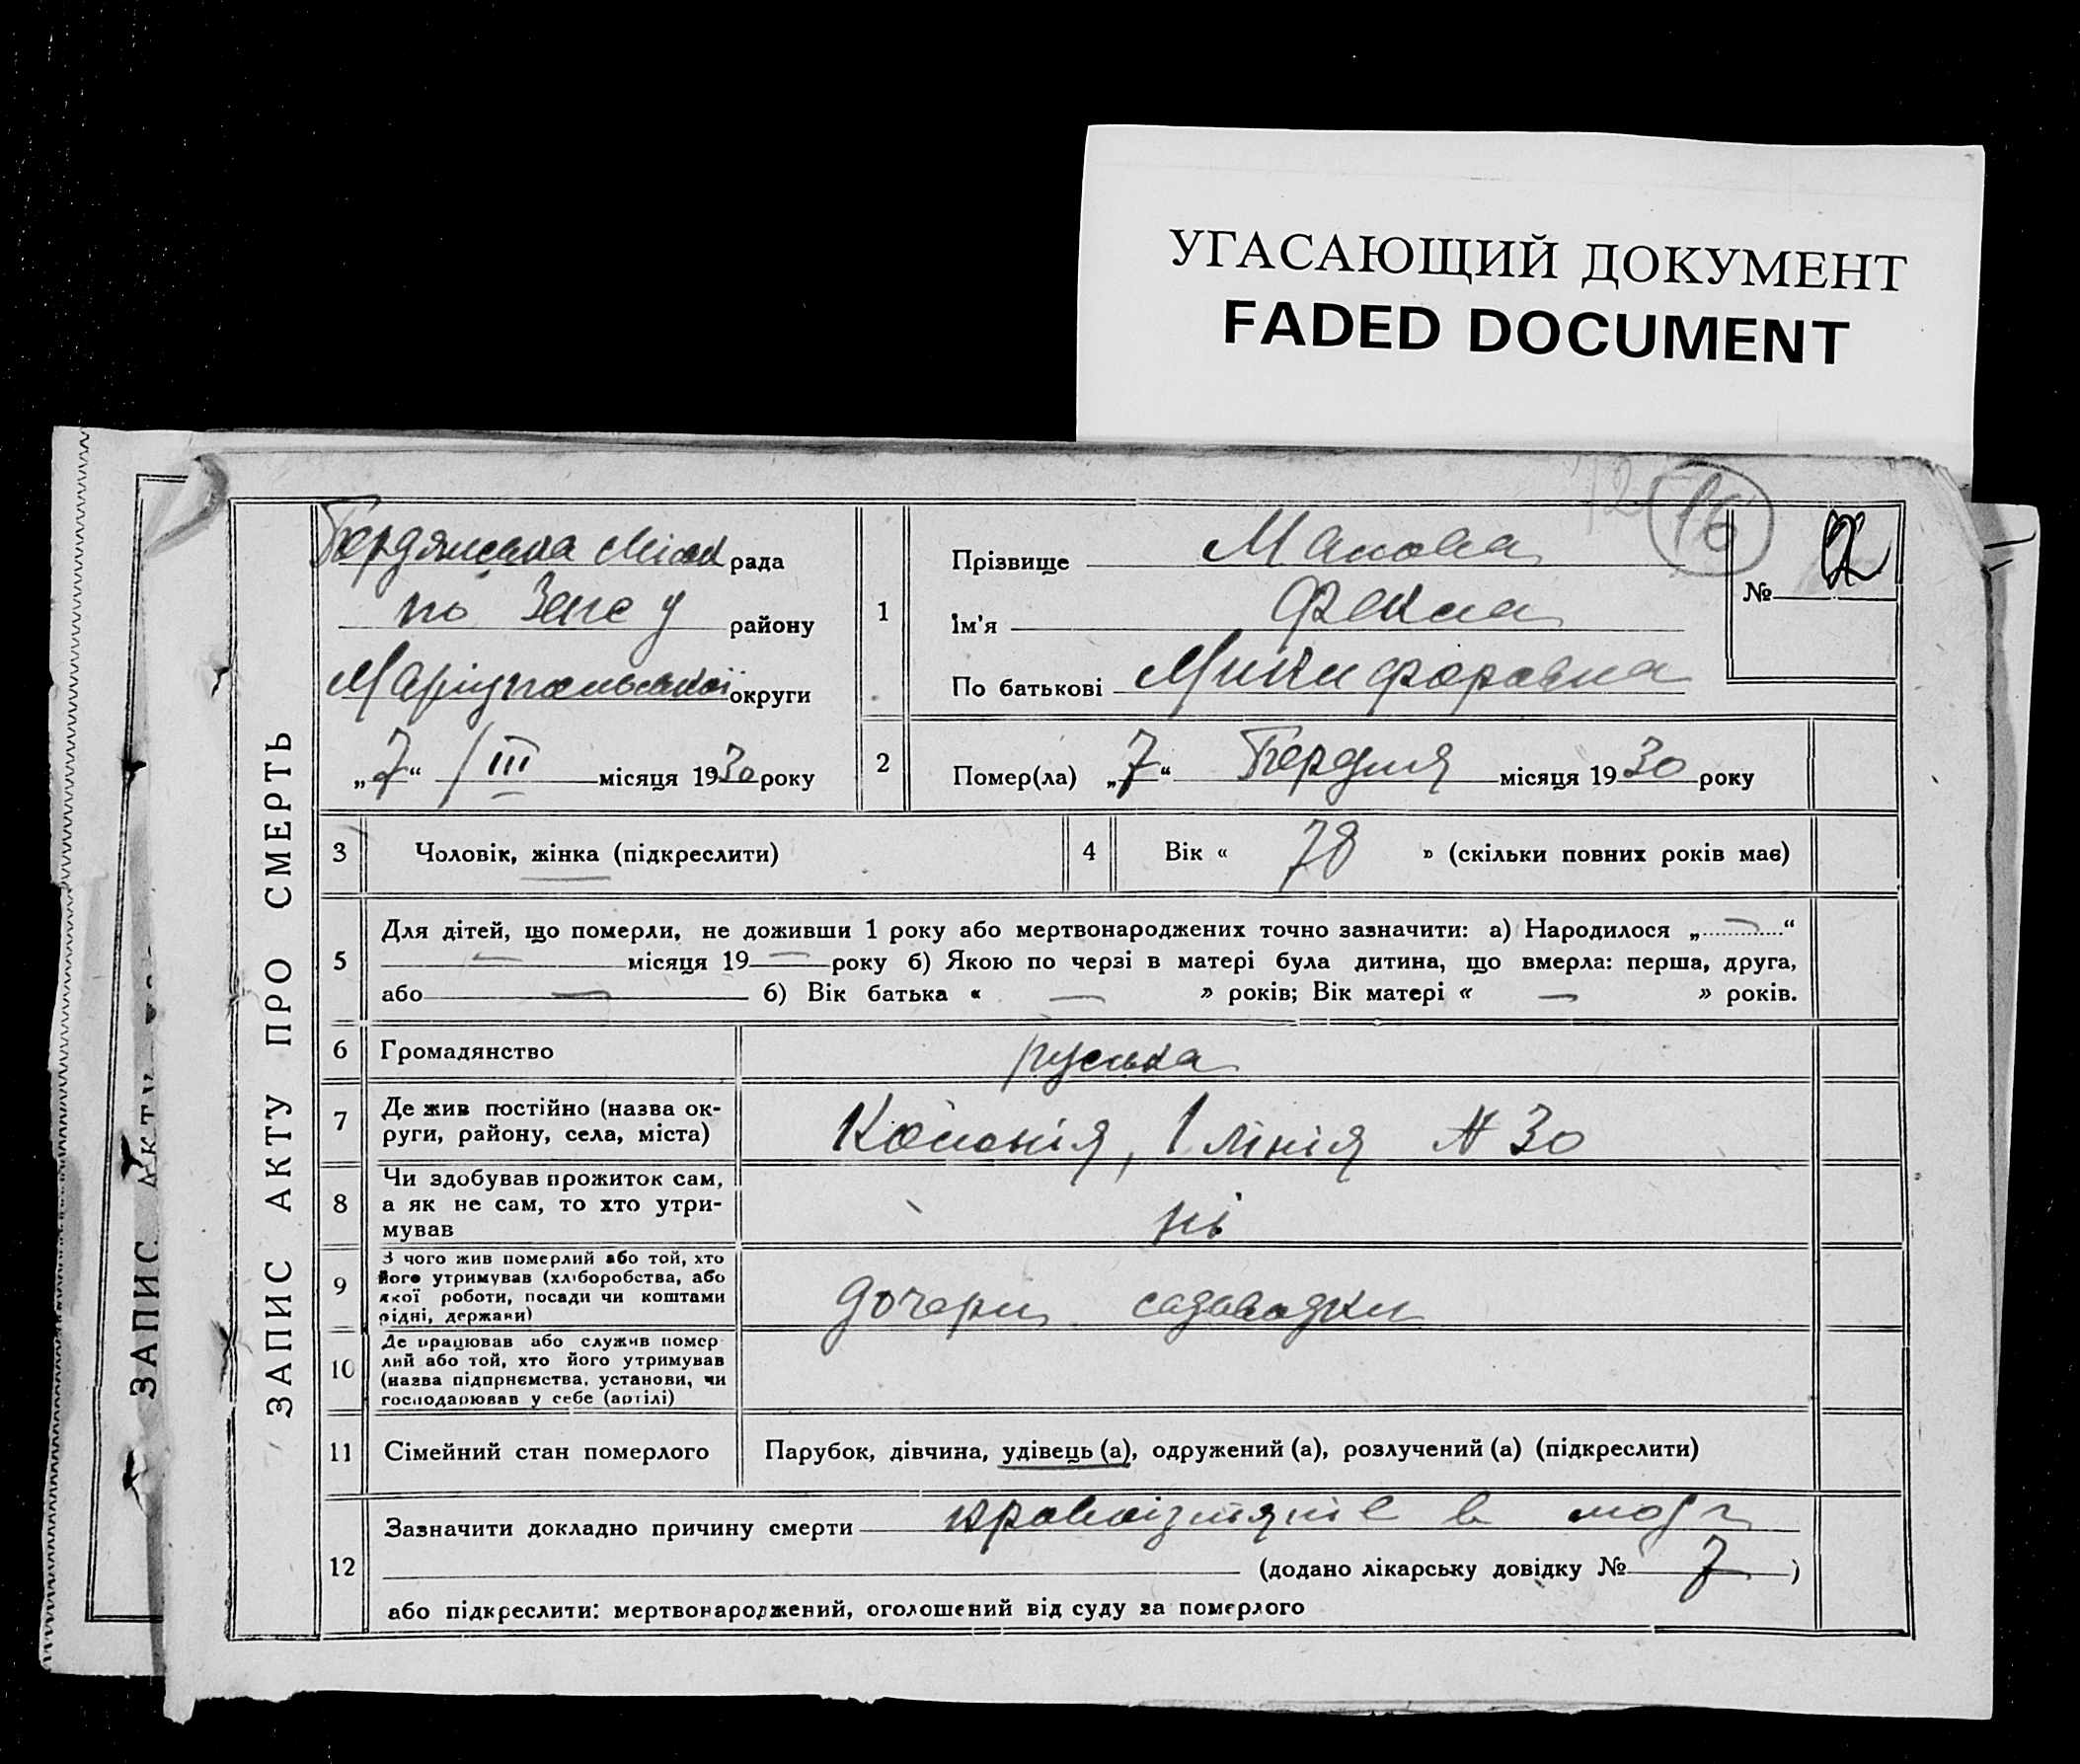 УГАСАЮЩИЙ ДОКУМЕНТ
FADED DOCUMENT
ЗАПИС
ЗАПИС АКТУ ПРО СМЕРТЬ
16
Бердянська Міськ рада
району
Маріупольської округи
„7“ / III місяця 1930 року
1
Прізвище
Ім'я Фекла
По батькові Микифоровна
№ 2
2
Помер(ла) „7“ Березня місяця 1930 року
3 Чоловік, жінка (підкреслити)
4 Вік « 78 » (скільки повних років має)
5
Для дітей, що померли, не доживши 1 року або мертвонароджених точно зазначити: а) Народилося „—“
— місяця 19— року б) Якою по черзі в матері була дитина, що вмерла: перша, друга,
або — б) Вік батька « — » років; Вік матері « — » років.
6 Громадянство руська
7
Де жив постійно (назва ок-
руги, району, села, міста)
Колонія, 1 лінія № 30
8
Чи здобував прожиток сам,
а як не сам, то хто утри-
мував
ні
9
З чого жив померлий або той, хто
його утримував (хліборобства, або
якої роботи, посади чи коштами
рідні, держави)
дочери садоводки
10
Де працював або служив помер
лий або той, хто його утримував
(назва підприємства, установи, чи
господарював у себе (артілі)
11 Сімейний стан померлого Парубок, дівчина, удівець (а), одружений (а), розлучений (а) (підкреслити)
12
Зазначити докладно причину смерти в мозг
(додано лікарську довідку № 7)
або підкреслити: мертвонароджений, оголошений від суду за померлого